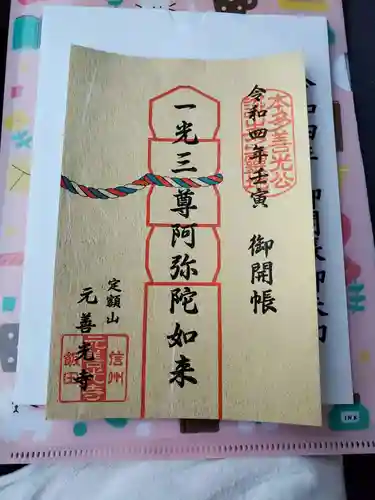 令和四年壬寅 御開帳
本多善光公
一光三尊阿弥陀如来
定額山
元善光寺
信州
元善光寺
飯田